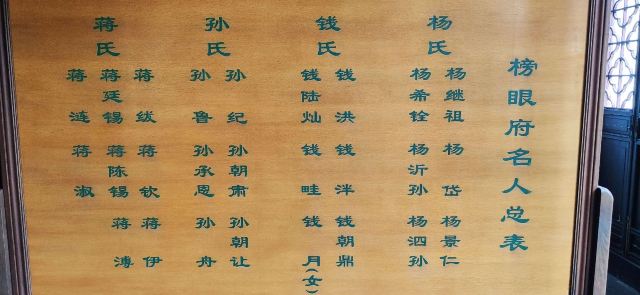 榜眼府名人总表
杨氏
杨继祖
杨希铨
杨岱
杨沂孙
杨景仁
杨泗孙
钱氏
钱洪
钱陆灿
钱泮
钱畦
钱朝鼎
钱月(女)
孙氏
孙纪
孙鲁
孙朝肃
孙承恩
孙朝让
孙舟
蒋氏
蒋绂
蒋廷锡
蒋涟
蒋钦
蒋陈锡
蒋淑
蒋伊
蒋溥